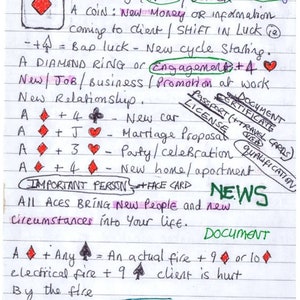 A COIN: New Money or information
coming to client / SHIFT IN Luck ⑫
-A♠ = Bad luck - New cycle starting.
A DIAMOND RING or Engagement + 4 ♥
New/Job/Business/Promotion at work
New Relationship.
DOCUMENT
CERTIFICATE
PASSPORT (+TRAVEL CARDS)
LICENSE
QUALIFICATION
A ♦ + 4 ♣ - New car
A ♦ + J ♥ - Marriage Proposal
A ♦ + 3 ♥ - Party/celebration
A ♦ + 4 ♦ - New home/apartment
IMPORTANT PERSON + FACE CARD
NEWS
All Aces BRING New People and new
circumstances into Your life.
DOCUMENT
A ♦ + Any ♠ = An actual fire + 9 ♦ or 10♦
electrical fire + 9 ♠ client is hurt
By the fire